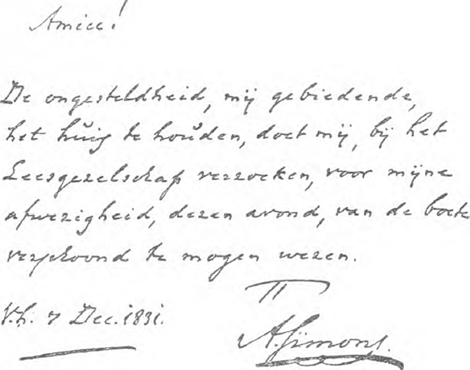 Amice!
De ongesteldheid, mij gebiedende,
het huis te houden, doet mij, bij het
Leesgezelschap verzoeken, voor mijne
afwezigheid, dezen avond, van de boete
verschoond te mogen wezen.
TT
V.h. 7 Dec. 1831.
A. Simons.